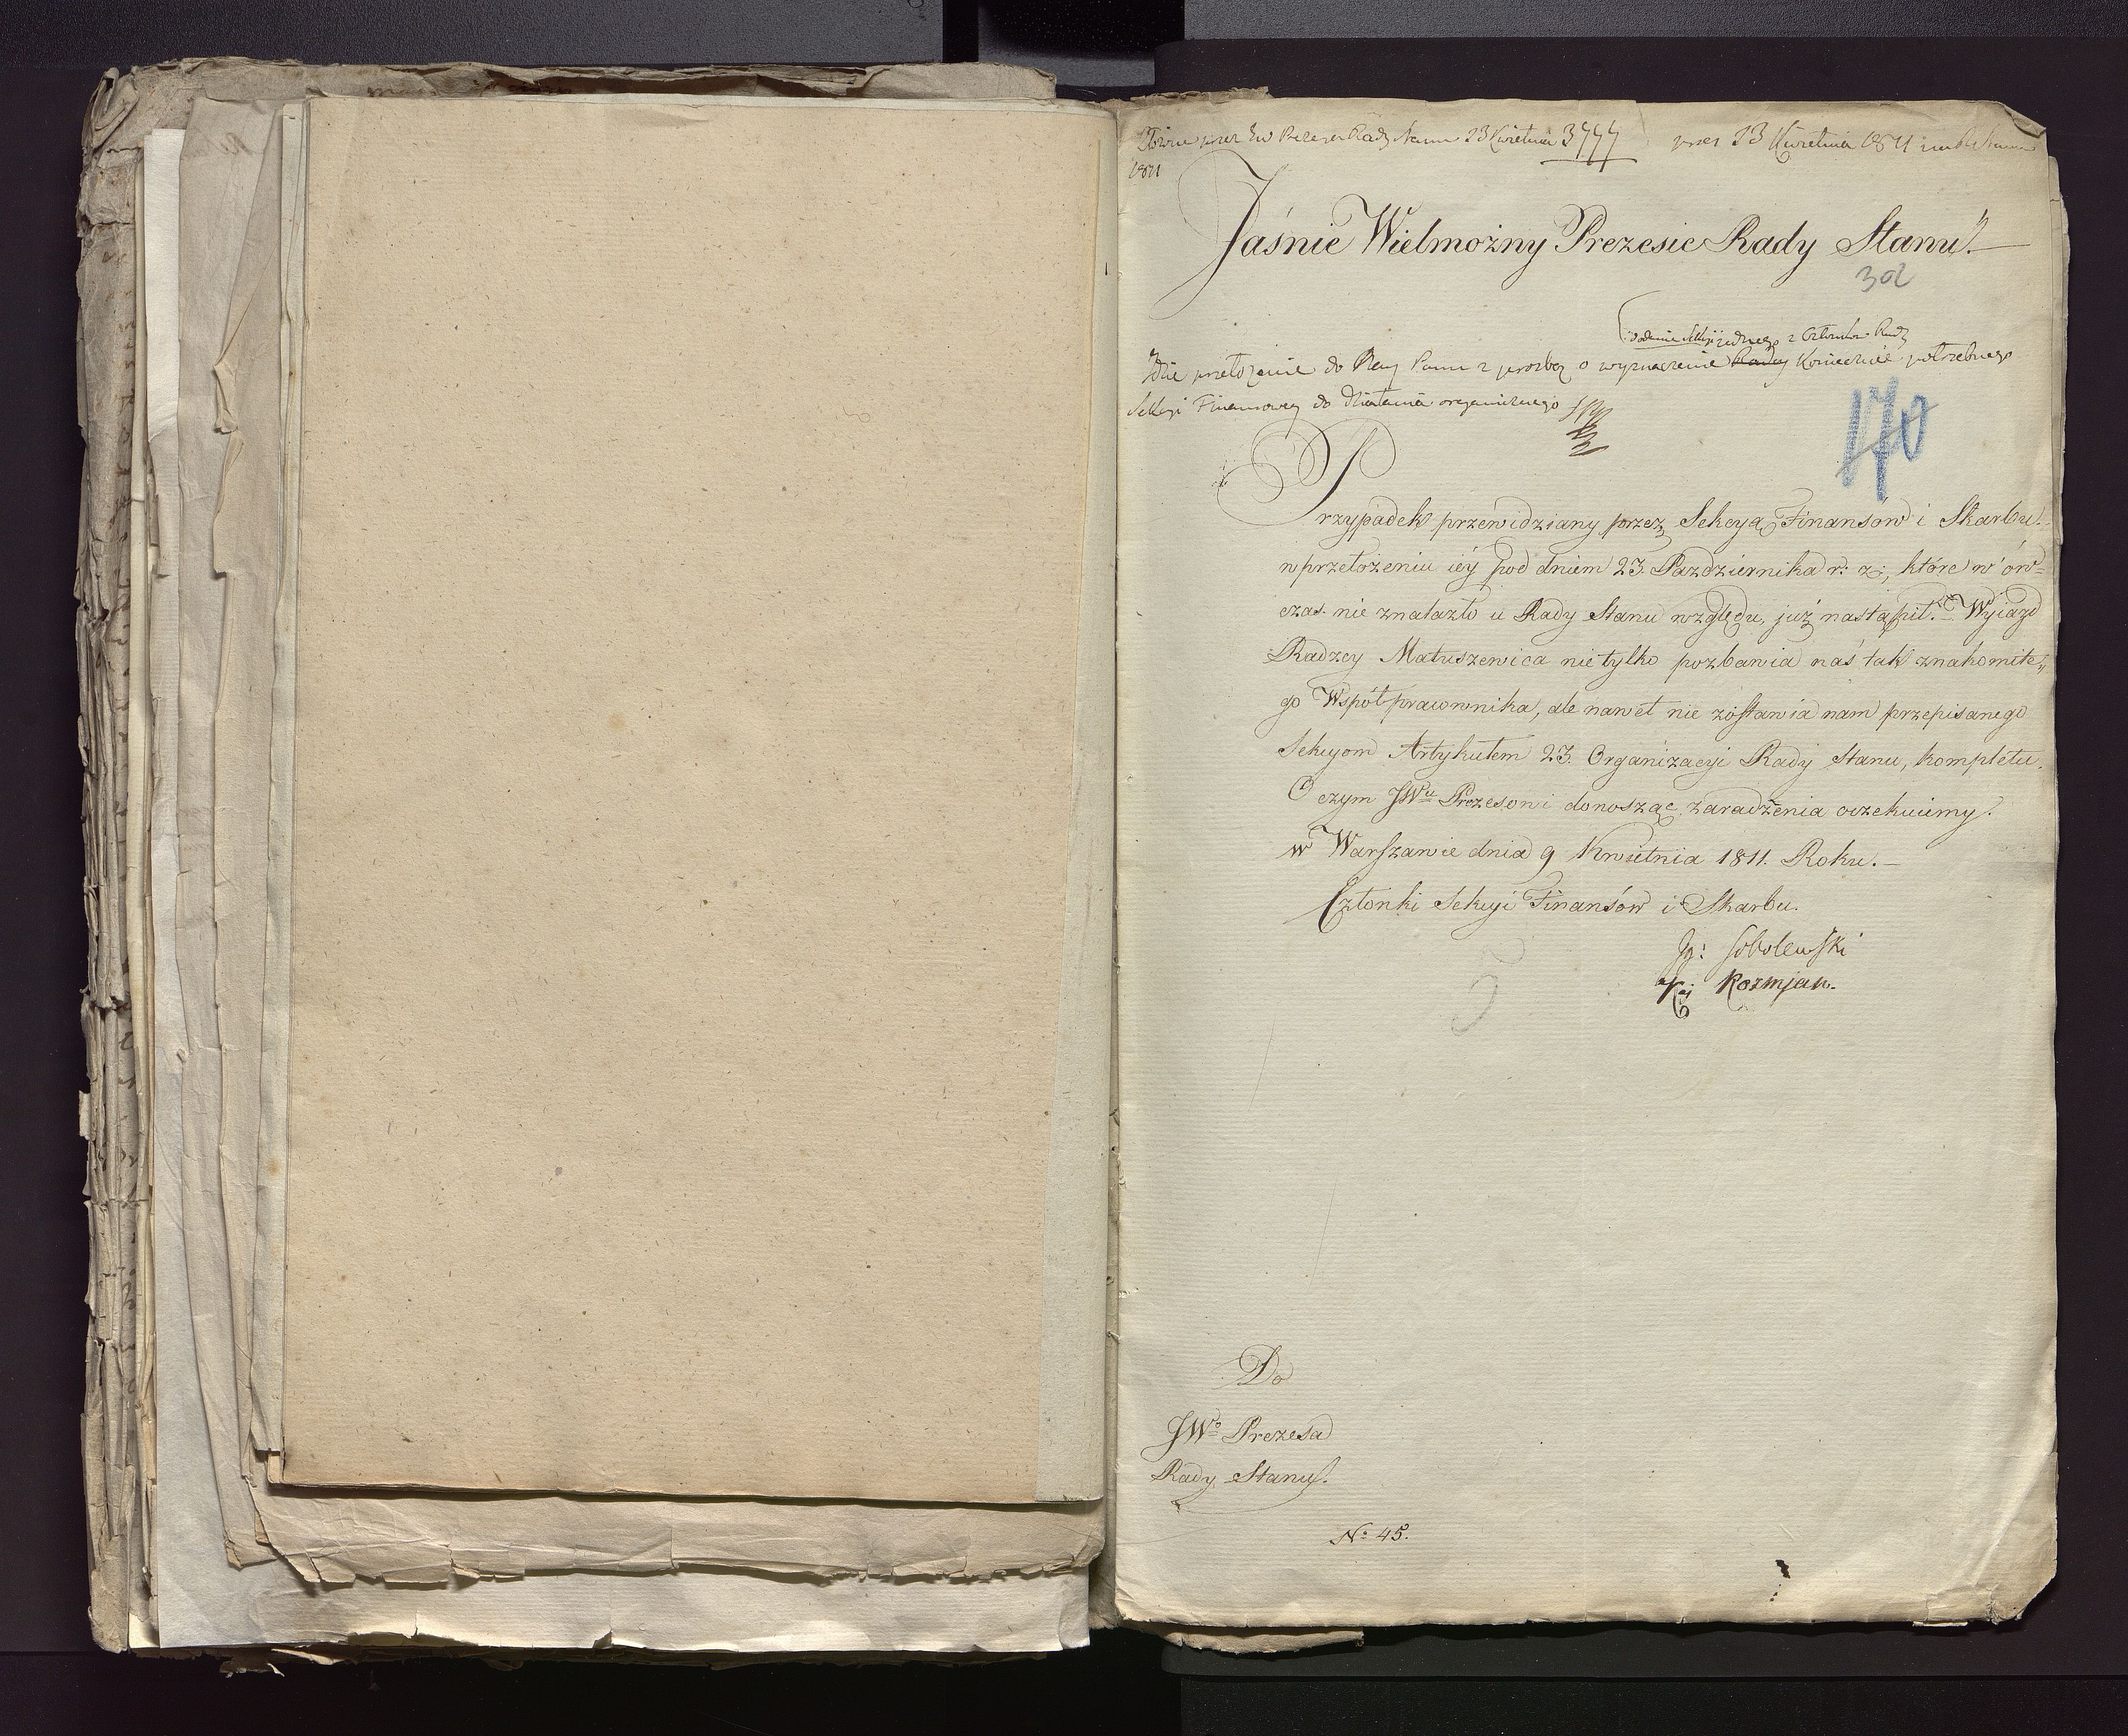 23 Kwietnia 3777 13 Kwietnia 1811
1811
Jaśnie Wielmożny Prezesie Rady Stanu!
302
jednego z Członków Rady
Idzie przełożenie do z prośbą o wyznaczenie Rady koniecznie potrzebnego
Sekcyi Finansowey do działania organicznego
170
Przypadek przewidziany przez Sekcyą Finansów i Skarbu
w przełożeniu iéy pod dniem 23. Pazdziernika r: z:, które w ów=
czas nie znalazło u Rady Stanu względu, już nastąpił. Wyiazd
Radzcy Matuszewica nie tylko pozbawia nas tak znakomite„
go Współpracownika, ale nawet nie zostawia nam przepisanego
Sekcyom Artykułem 23. Organizacyi Rady Stanu, kompletu.
O czym JWu Prezesowi donosząc zaradzenia oczekuiemy.
w Warszawie dnia 9 Kwietnia 1811. Roku.
Członki Sekcyi Finansów i Skarbu.
Ig: Sobolewski
Kozmian.
Do
JWo Prezesa
Rady Stanu.
No 45.